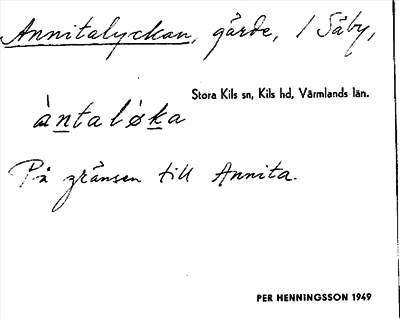 Annitalyckan, gärde, / Säby,
Stora Kils sn, Kils hd, Värmlands län.
àntalø̀ka
På gränsen till Annita.
PER HENNINGSSON 1949